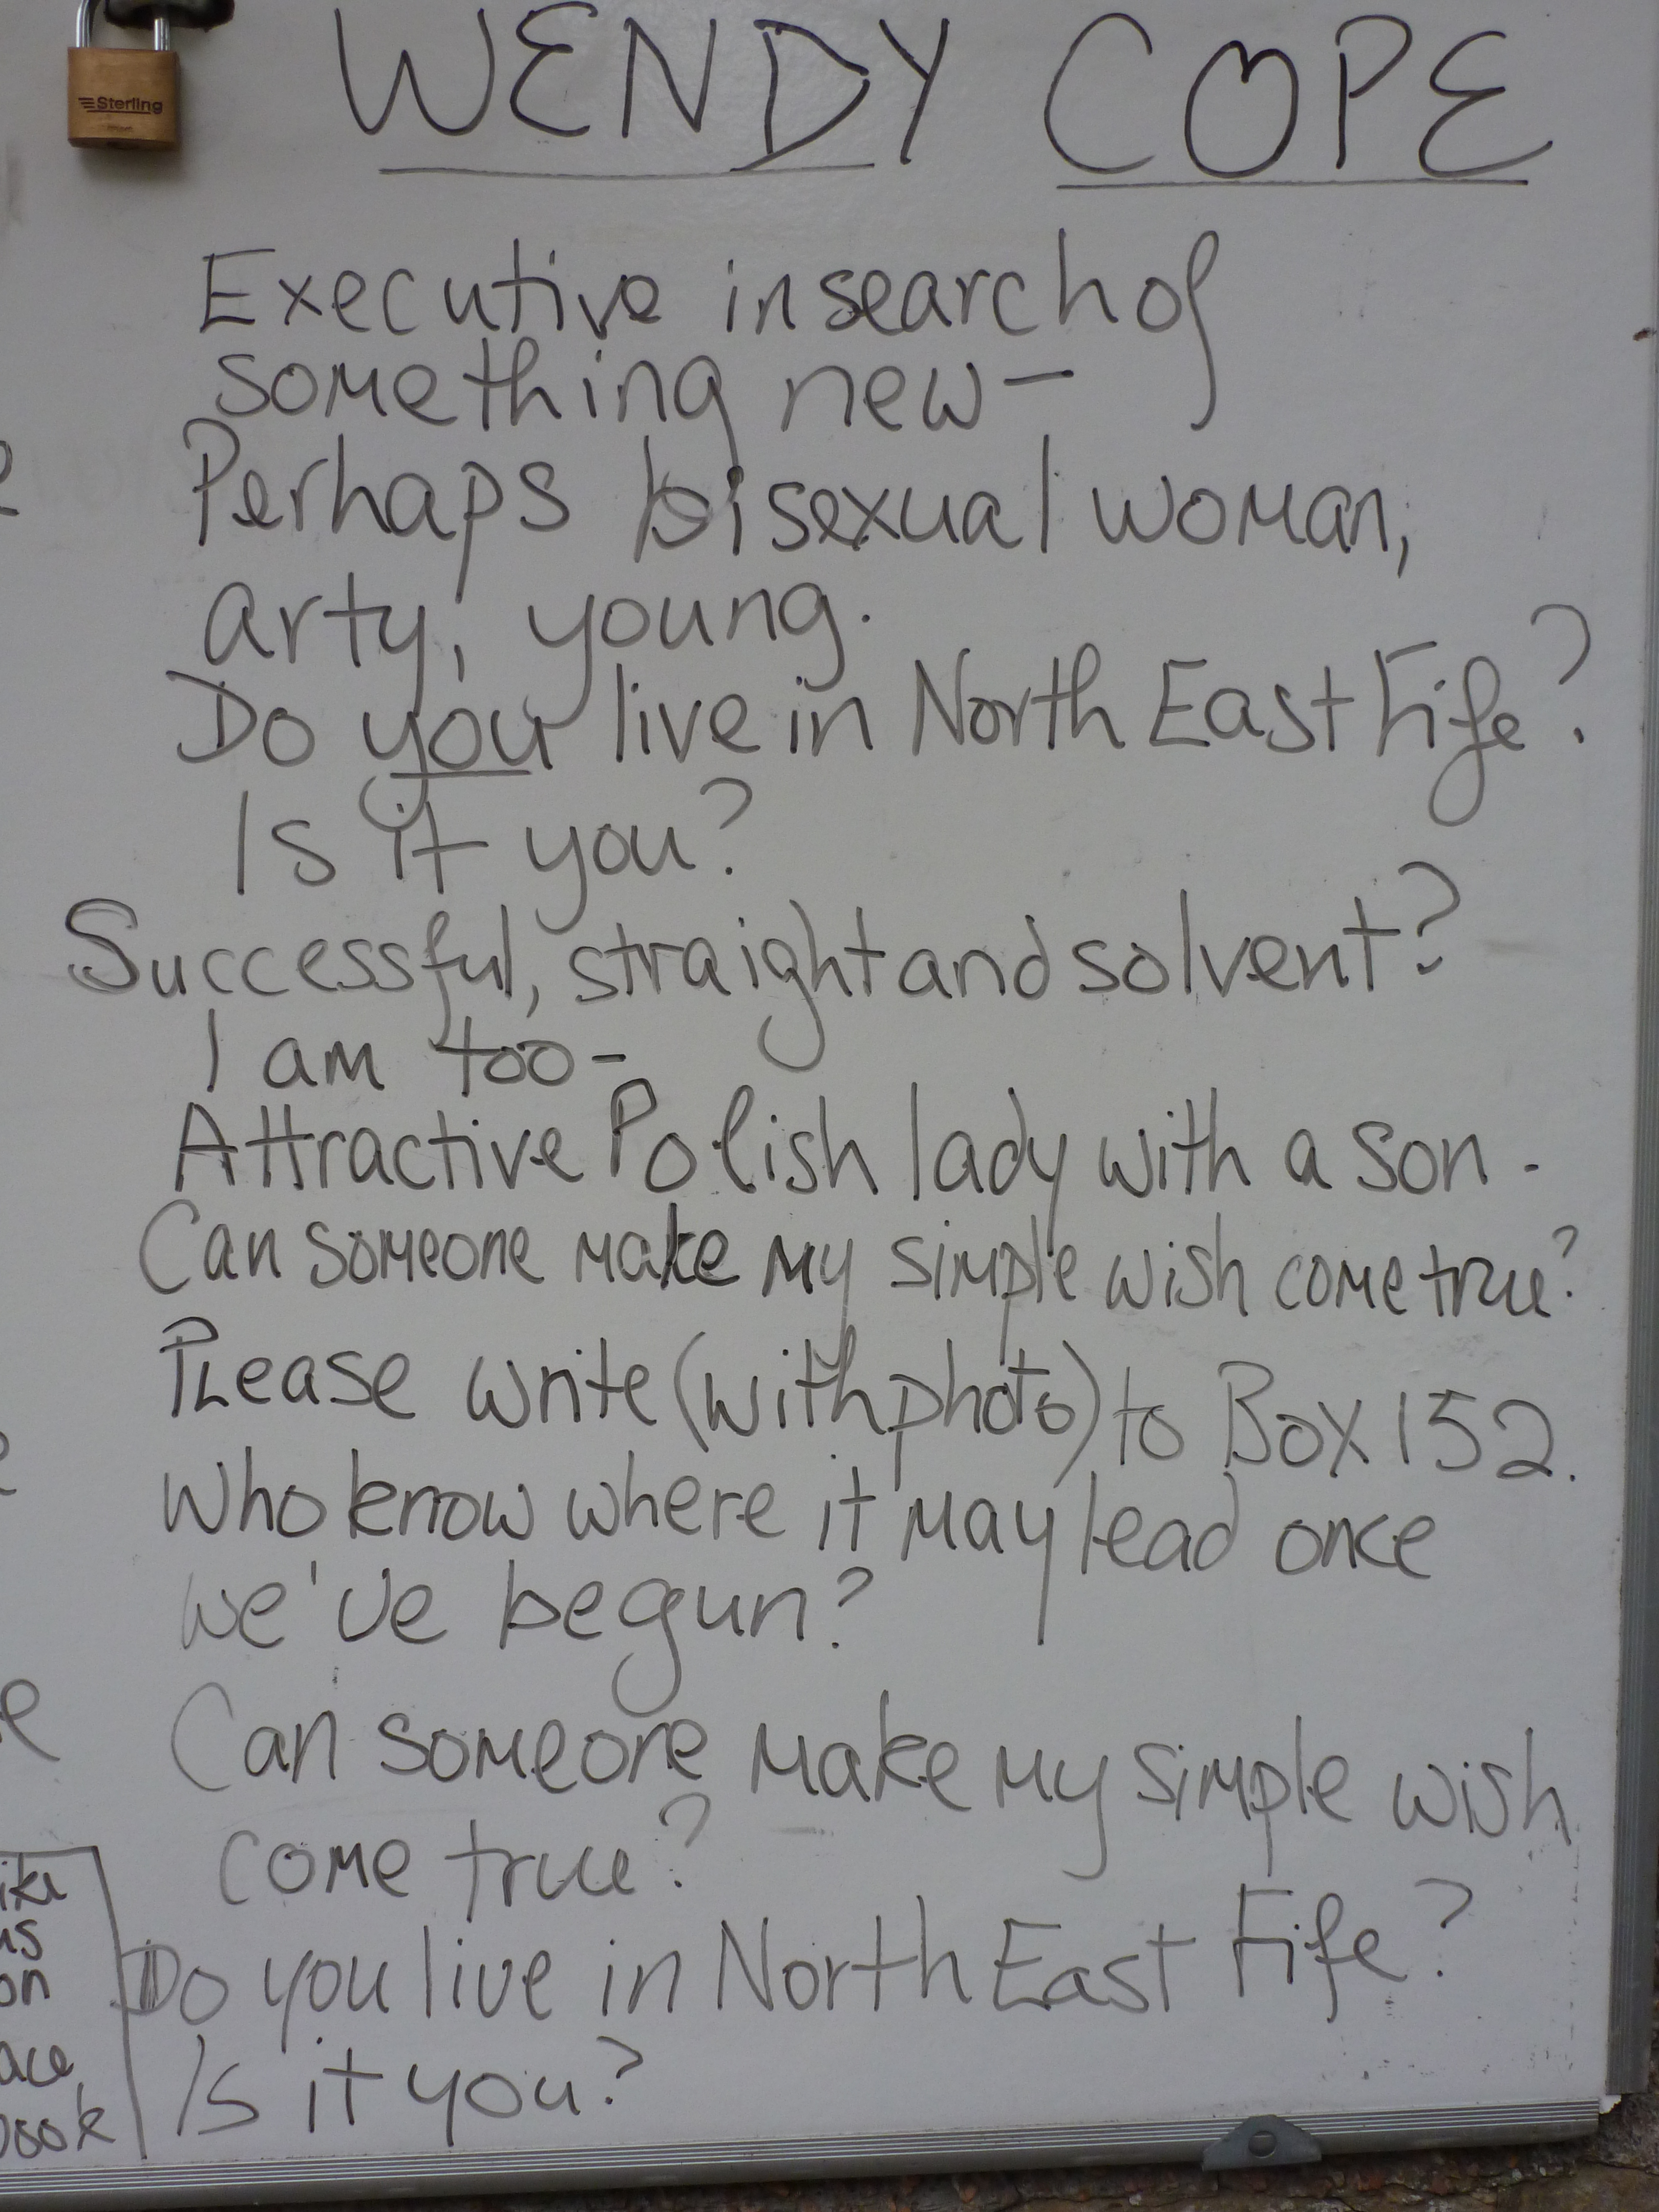 Sterling
WENDY COPE
Executive in search of
something new –
Perhaps bisexual woman,
arty, young.
Do you live in North East Fife?
Is it you?
Successful, straight and solvent?
I am too –
Attractive Polish lady with a son.
Can someone make my simple wish come true?
Please write (with photo) to Box 152.
Who know where it may lead once
we've begun?
Can someone make my simple wish
come true?
Do you live in North East Fife?
Is it you?